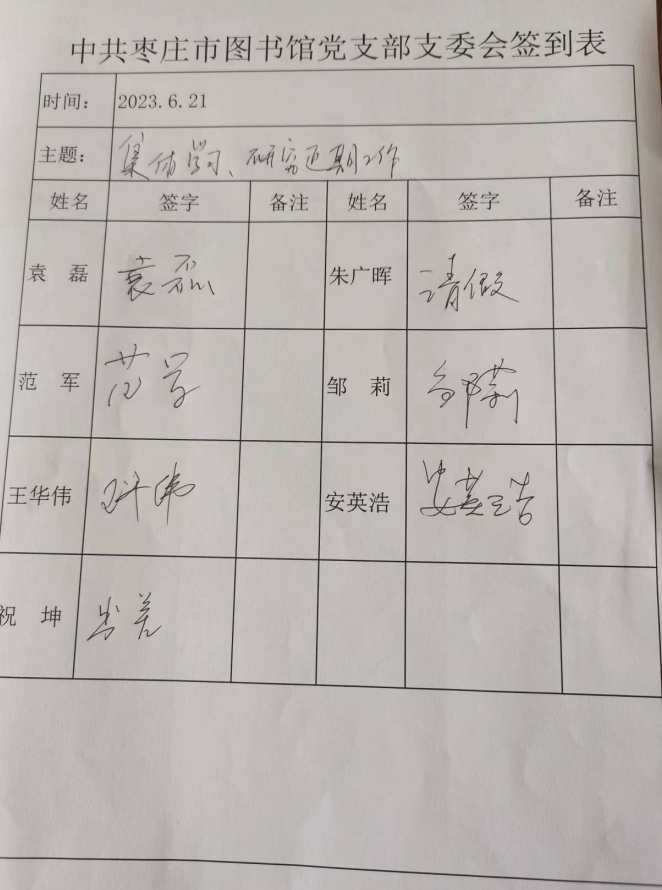 中共枣庄市图书馆党支部支委会签到表
时间： 2023.6.21
主题： 集体学习、研究近期工作
姓名 签字 备注 姓名 签字 备注
袁 磊 袁磊 朱广晖 请假
范 军 范军 邹 莉 邹莉
王华伟 王华伟 安英浩 安英浩
祝 坤 出差